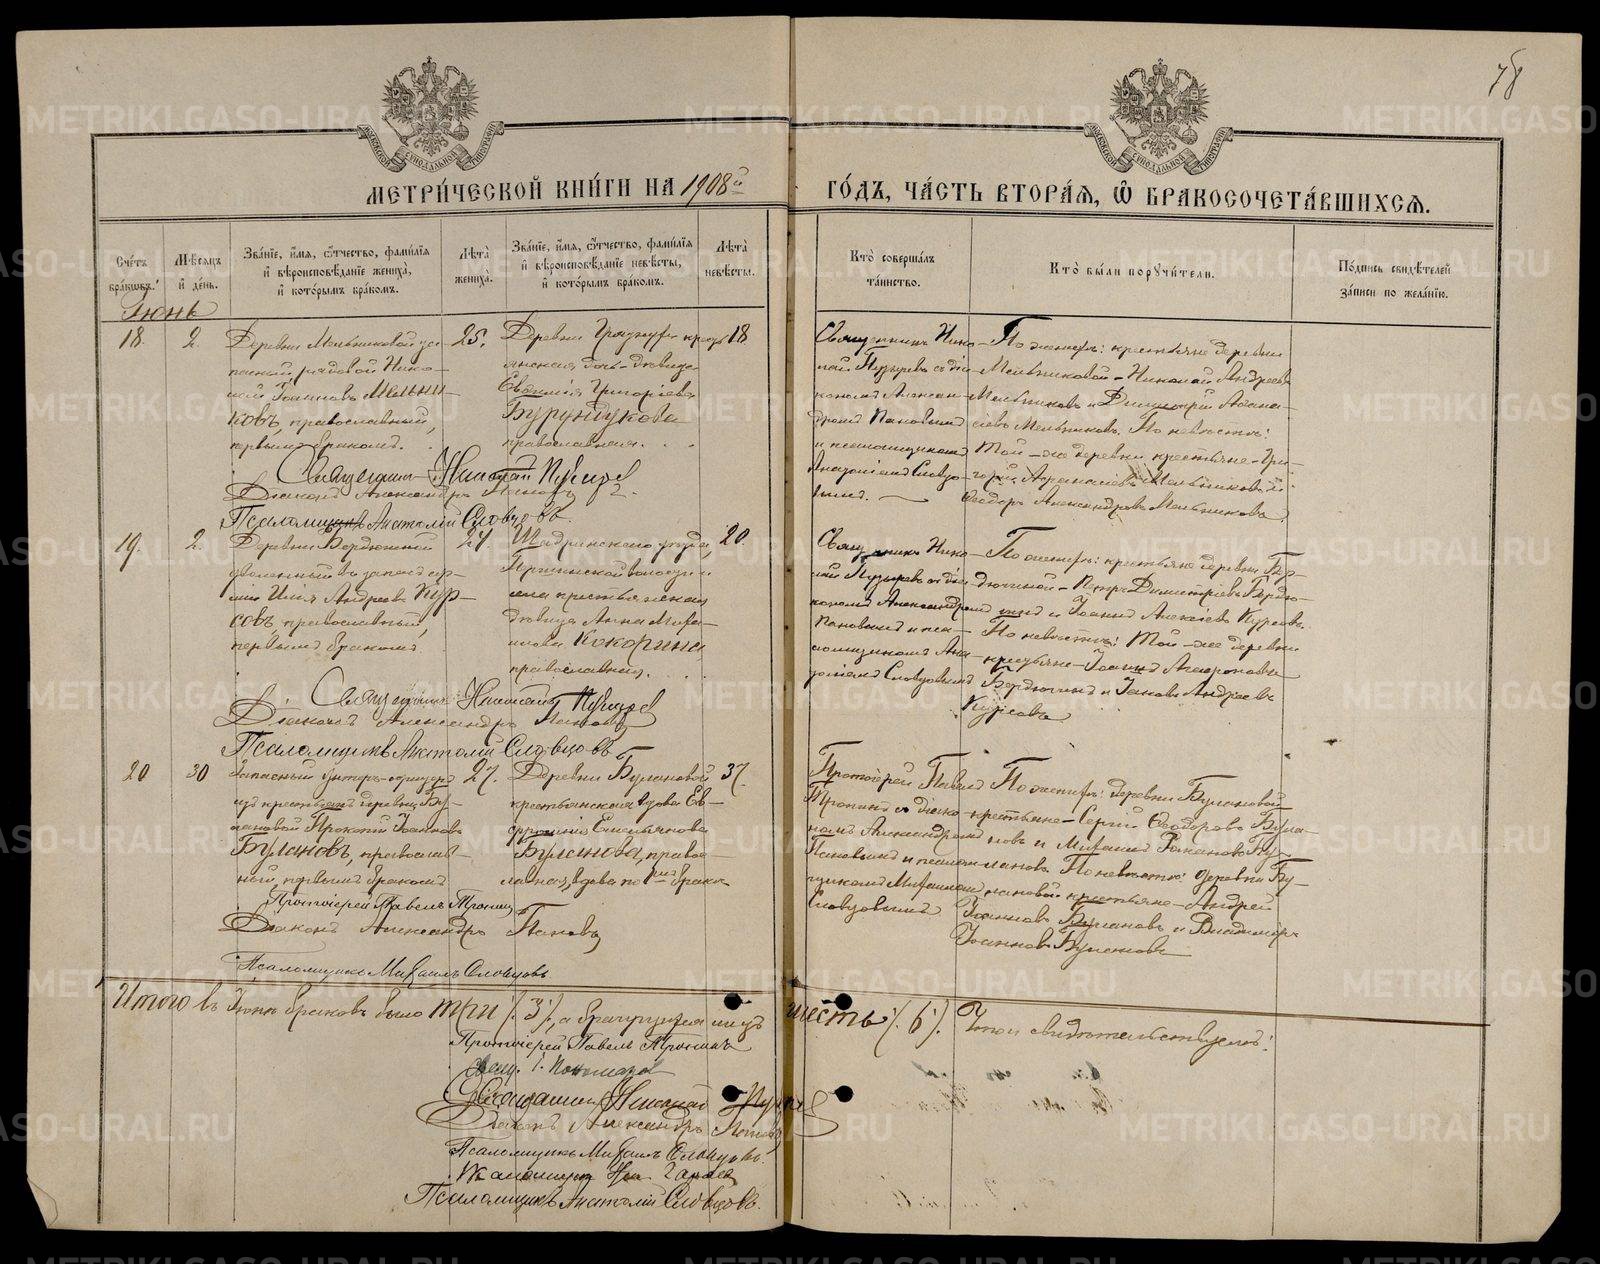 78
МЕТРИ́ЧЕСКОЙ КНИ́ГИ НА 1908й ГО́ДЪ, ЧА́СТЬ ВТОРА́Я, Ѡ БРАКОСОЧЕТА́ВШИХСЯ.
Сче́тъ бра́ковъ.
Мѣ́сяцъ и де́нь.
Зва́нїе, и́мя, ѻ́тчество, фами́лїя и вѣроисповѣ́данїе жениха̀, и кото́рымъ бра́комъ.
Лѣта̀ жениха̀.
Зва́нїе, и́мя, ѻ́тчество, фами́лїя и вѣроисповѣ́данїе невѣ́сты, и кото́рымъ бра́комъ.
Лѣта̀ невѣ́сты.
Кто̀ соверша́лъ та́инство.
Кто̀ бы́ли поручи́тели.
По́дпись свидѣ́телей за́писи по жела́нїю.
Іюнь
18.
2.
Деревни Мельниковой за-
пасный рядовой Нико-
лай Іоанновъ Мельни-
ковъ, православный,
первымъ бракомъ.
25.
Деревни кресть
янская дочь-дѣвица
Евѳимія Григоріева
Бурундукова
православная.
18
Священникъ Нико-
лай Пузыревъ съ діа-
кономъ Алексан-
дромъ Пановымъ
и псаломщикомъ
Анатоліемъ Словцо-
вымъ.
По женихѣ: крестьяне деревни
Мельниковой - Николай Андреевъ
Мельниковъ и Димитрій Аѳана-
сіевъ Мельниковъ. По невѣстѣ:
той-же деревни крестьяне - Гри-
горій Аѳанасіевъ Мельниковъ и
Ѳеодоръ Александровъ Мельниковъ.
Священникъ Николай Пузырев
Діаконъ Александръ Пановъ
Псаломщикъ Анатолій Словцовъ.
19.
2.
Деревни Бердюгиной
уволенный въ запасъ ар-
міи Илія Андреевъ Кур-
совъ, православный,
первымъ бракомъ.
24.
Шадринскаго уѣзда,
волости и
села крестьянская
дѣвица Анна Миха-
илова Кокорина,
православная.
20.
Священникъ Нико-
лай Пузыревъ съ діа-
кономъ Александромъ
Пановымъ и пса-
ломщикомъ Ана-
толіемъ Словцовымъ
По женихѣ: крестьяне деревни Бер-
дюгиной - Петръ Димитріевъ Бердю-
гинъ и Іоаннъ Алексіевъ Курсовъ.
По невѣстѣ: той-же деревни
крестьяне - Іоаннъ
Бердюгинъ и Іаковъ Андреевъ
Курсовъ
Священникъ Николай Пузырев
Діаконъ Александръ Пановъ
Псаломщикъ Анатолій Словцовъ
20
30
Запасный унтеръ-офицеръ
изъ крестьянъ деревни Бу-
лановой Прокопій Іоанновъ
Булановъ, православ-
ный, первымъ бракомъ
27.
Деревни Булановой
крестьянская вдова Ев-
фросинія Емельянова
Буланова, право-
славная, вдова по 1мъ бракѣ
37.
Протоіерей Павелъ
Тронинъ съ діако-
номъ Александромъ
Пановымъ и псалом-
щикомъ Михаиломъ
Словцовымъ
По женихѣ: деревни Булановой
крестьяне - Сергій Ѳеодоровъ Була-
новъ и Михаилъ Романовъ Бу-
лановъ. По невѣстѣ: деревни Бу-
лановой крестьяне - Андрей
Іоанновъ Булановъ и Владиміръ
Іоанновъ Булановъ
Протоіерей Павелъ Тронинъ
Діаконъ Александръ Пановъ
Псаломщикъ Михаилъ Словцовъ
Итого въ Іюнѣ браковъ было три /.3/., а брачущихся лицъ шесть /.6/. Въ чемъ и свидѣтельствуемъ:
Протоіерей Павелъ Тронинъ
Свящ. І. Пономарев
Священникъ Николай Пузырев
Діаконъ Александръ Пановъ
Псаломщикъ Михаилъ Словцовъ.
Псаломщикъ
Псаломщикъ Анатолій Словцовъ.
METRIKI.GASO-URAL.RU